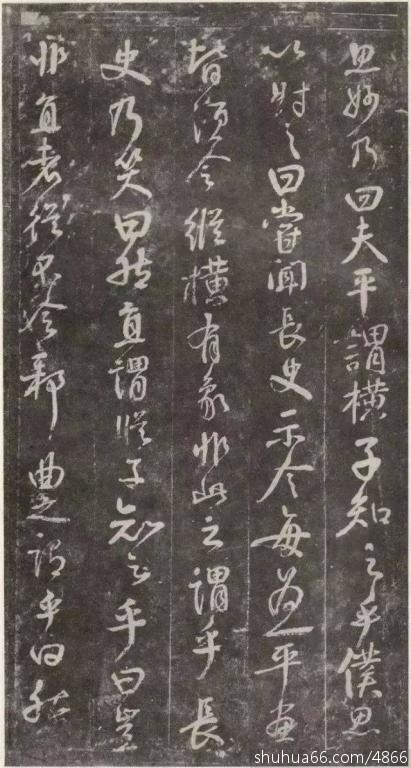 思妙乃曰夫平謂橫子知之乎僕思
以對之曰當聞長史示令每為一平畫
皆須令縱橫有象非此之謂乎長
史乃笑曰然直謂縱子知之乎曰豈
非直者從不令邪曲之謂乎曰然
shuhua66.com/4866